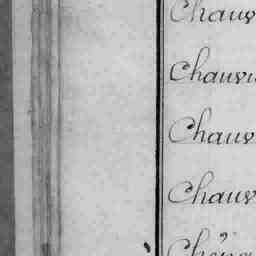 Chauv
Chauvi
Chauv
Chauv